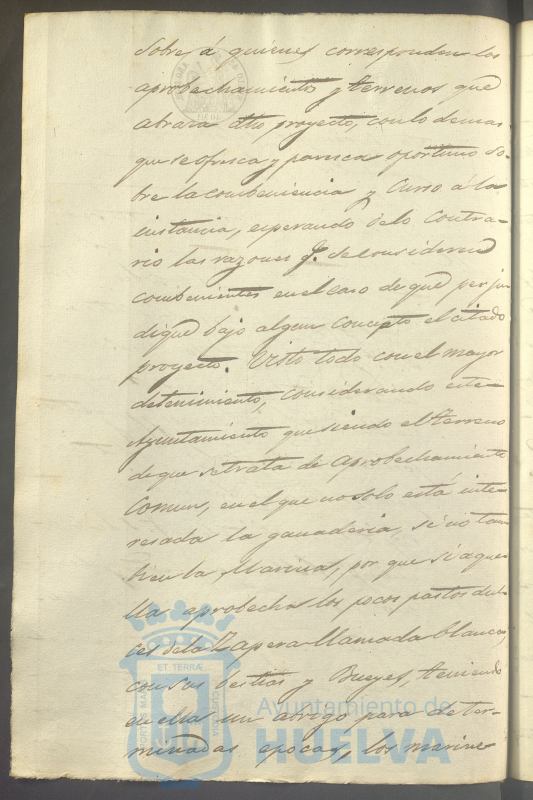 sobre á quienes corresponden los
aprobechamientos y terrenos que
abraza dho proyecto, con lo demas
que se ofresca y paresca oportuno so-
bre la combeniencia y curso á la
instancia, esperando delo contra-
rio las razones q.e se consideren
combenientes en el caso de que perju
dique bajo algun concepto el citado
proyecto. Visto todo con el mayor
detenimiento, considerando este
Ayuntamiento que siendo el terreno
de que se trata de aprobechamiento
comun, en el que no solo está inte-
resada la ganaderia, sí no tam
bien la Marina, por que si aque
lla aprobecha los pocos pastos dul
ces de la Zapera llamada blanca,
con sus bestias y Bueyes, teniendo
en ella un abrigo para deter-
minadas epocas, los marine-
PORTUS MARIS
ET TERRÆ
CUSTODIA
Ayuntamiento de
HUELVA